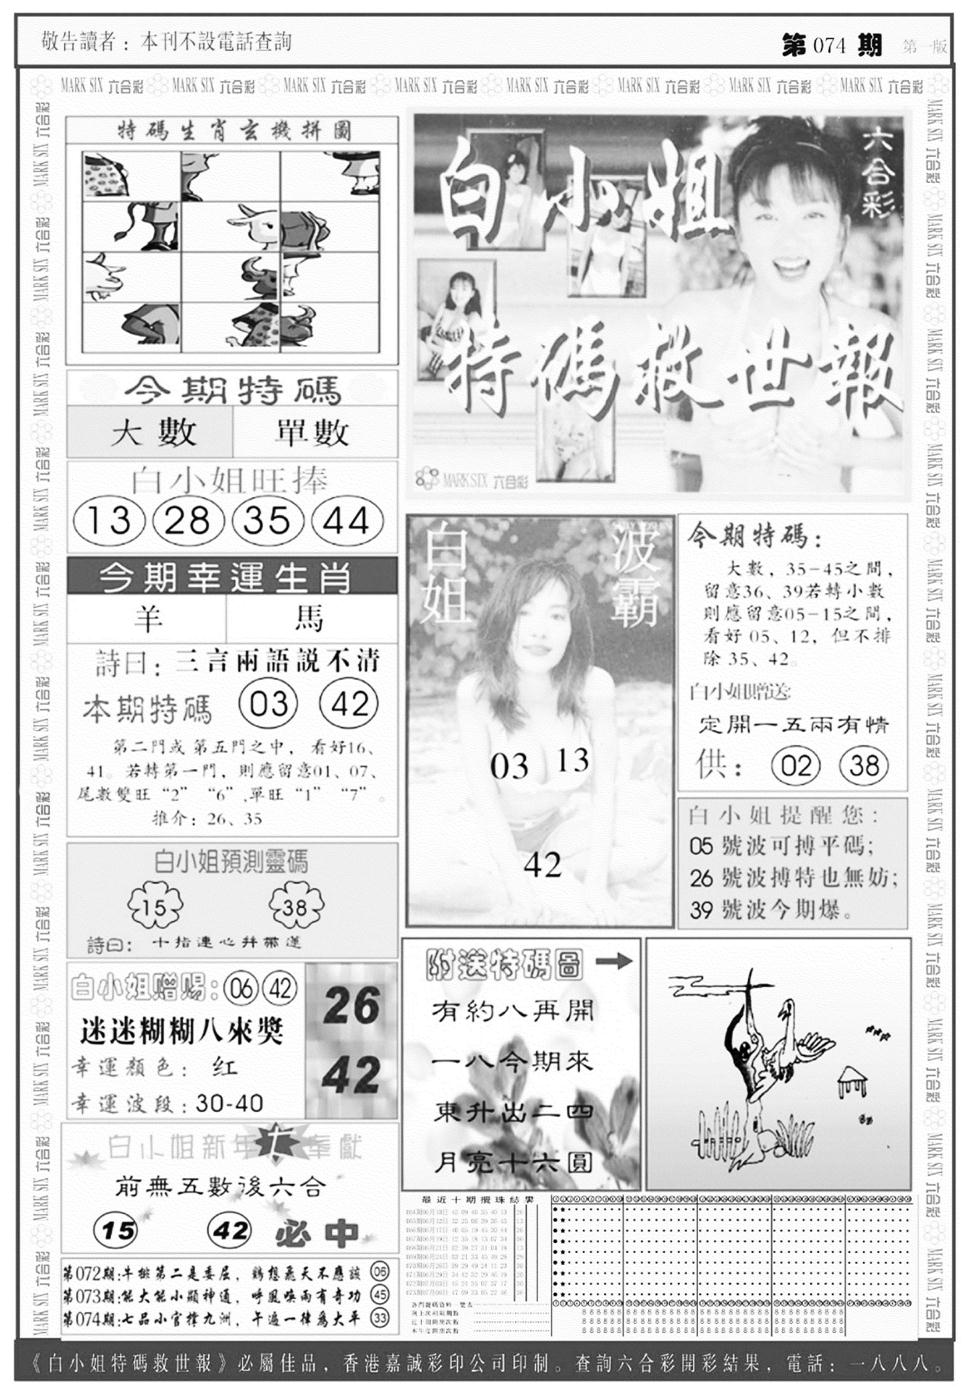 敬告讀者：本刊不設電話查詢
第 074 期 第一版
MARK SIX 六合彩 MARK SIX 六合彩 MARK SIX 六合彩 MARK SIX 六合彩 MARK SIX 六合彩 MARK SIX 六合彩 MARK SIX 六合彩 MARK SIX 六合彩
特碼生肖玄機拼圖
今期特碼
大數 單數
白小姐旺捧
13 28 35 44
今期幸運生肖
羊 馬
詩曰：三言兩語説不清
本期特碼 03 42
第二門或第五門之中，看好16、
41。若轉第一門，則應留意01、07、
尾數雙旺“2”“6”,單旺“1”“7”。
推介：26、35
白小姐預測靈碼
15 38
詩曰：十指連心并蒂蓮
白小姐贈賜：06 42
迷迷糊糊八來獎
幸運顏色：红
幸運波段：30-40
26
42
白小姐新年七奉獻
前無五數後六合
15 42 必中
第072期:牛批第二是委屈，鶴想飛天不應該 06
第073期:能大能小顯神通，呼風喚雨有奇功 45
第074期:七品小官擇九洲，午過一律為大平 33
白小姐
六合彩
特碼救世報
MARK SIX 六合彩
白姐
波霸
03 13
42
今期特碼：
大數，35-45之間，
留意36、39若轉小數
則應留意05-15之間，
看好05、12，但不排
除 35、42。
白小姐贈送：
定開一五兩有情
供：02 38
白小姐提醒您：
05 號波可搏平碼；
26 號波搏特也無妨；
39 號波今期爆。
附送特碼圖
有約八再開
一八今期來
東升出二四
月亮十六圓
最近十期攪珠結果
《白小姐特碼救世報》必屬佳品，香港嘉誠彩印公司印制。查詢六合彩開彩結果，電話：一八八八。